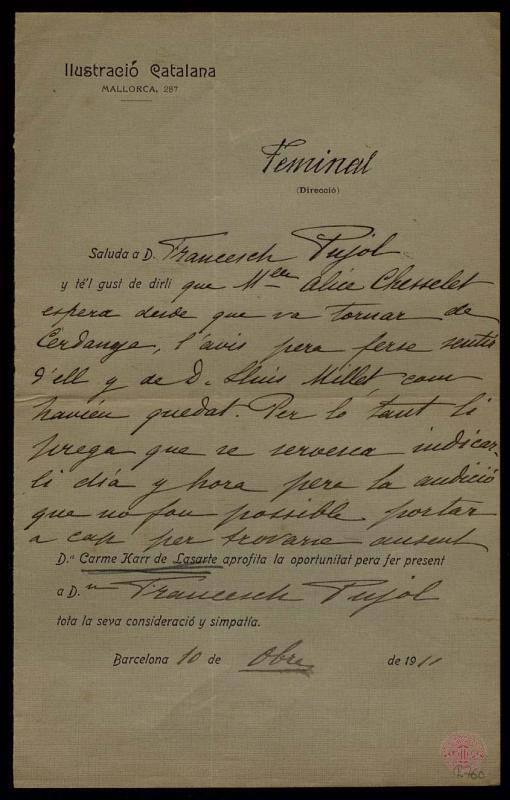 Ilustració Catalana
MALLORCA, 287
Feminal
(Direcció)
Saluda a D. Francesch Pujol
y té'l gust de dirli que Mlle Alice Chesselet
espera desde que va tornar de
Cerdanya, l'avis pera ferse sentir
d'ell y de D. Lluis Millet, com
havién quedat. Per lo tant li
prega que se servesca indicar-
li día y hora pera la audició
que no fou possible portar
a cap per trovarse ausent
D.ª Carme Karr de Lasarte aprofita la oportunitat pera fer present
a D.n Francesch Pujol
tota la seva consideració y simpatía.
Barcelona 10 de Obre de 1911